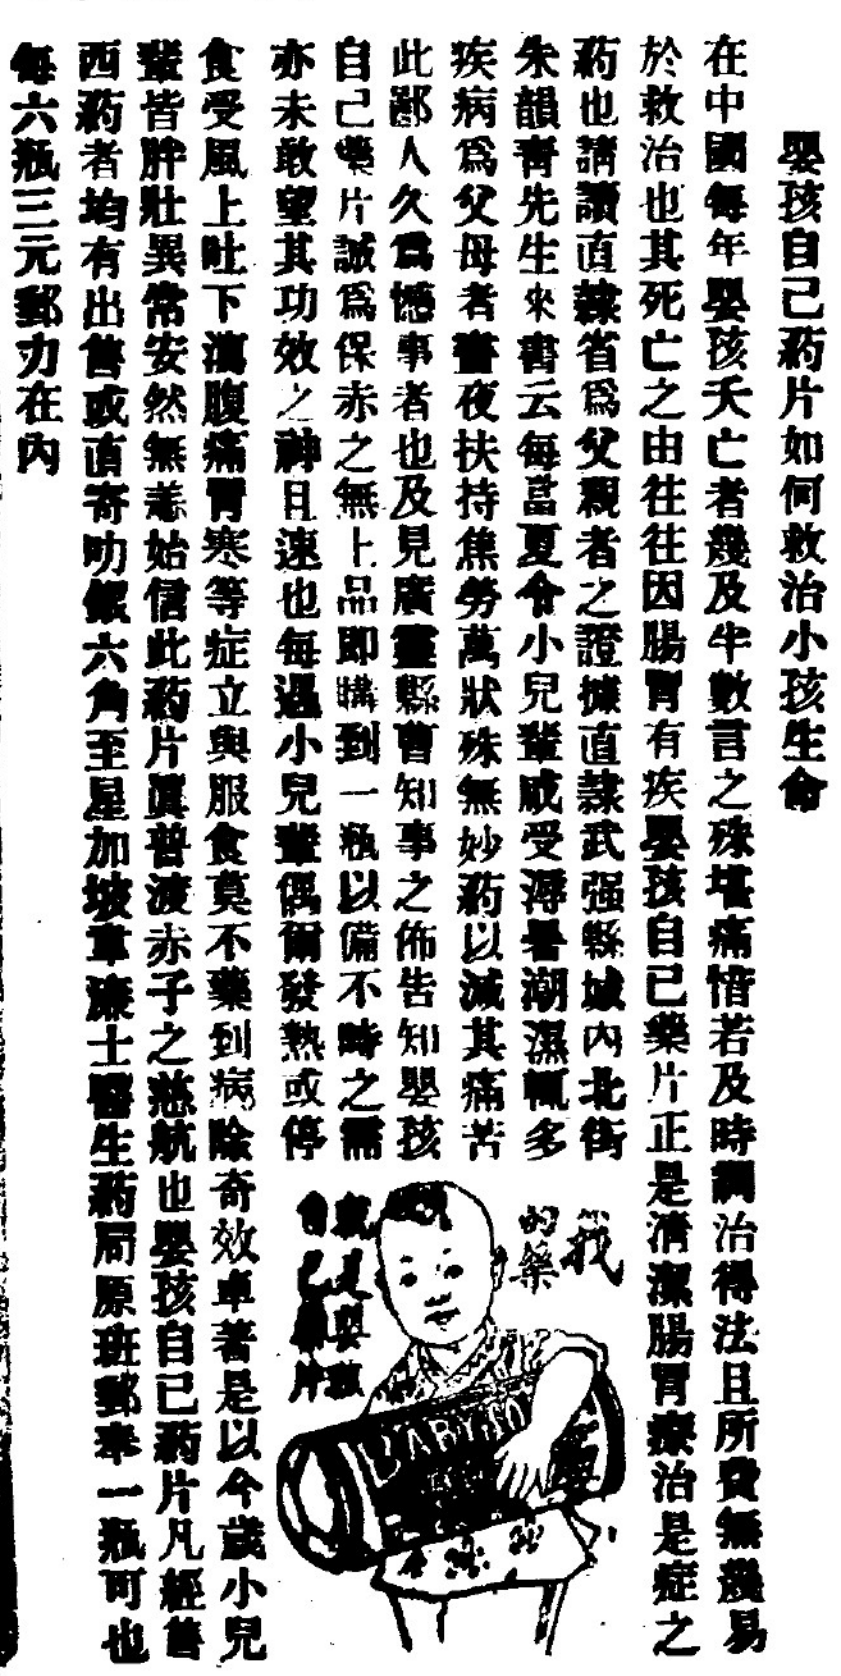 嬰孩自己葯片如何救治小孩生命
在中國每年嬰孩夭亡者幾及半數言之殊堪痛惜若及時調治得法且所費無幾易
於救治也其死亡之由往往因腸胃有疾嬰孩自己藥片正是清潔腸胃療治是症之
葯也請讀直隸省爲父親者之證據直隸武强縣城內北街
朱韻靑先生來書云每當夏令小兒輩感受溽暑潮濕輒多
疾病爲父母者晝夜扶持焦勞萬狀殊無妙葯以減其痛苦
此鄙人久爲憾事者也及見廣靈縣曹知事之佈告知嬰孩
自己藥片誠爲保赤之無上品即購到一瓶以備不時之需
亦未敢望其功效之神且速也每遇小兒輩偶爾發熱或停
食受風上吐下瀉腹痛胃寒等症立與服食莫不藥到病除奇效卓著是以今歲小兒
輩皆胖壯異常安然無恙始信此葯片眞普渡赤子之慈航也嬰孩自已葯片凡經售
西葯者均有出售或直寄叻銀六角至星加坡韋廉士醫生葯局原班郵奉一瓶可也
每六瓶三元郵力在內
我
的藥
就是嬰孩
自己藥片
BABY'S O